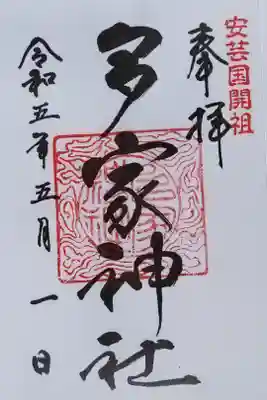 安芸国開祖
奉拝
多家神社
令和五年五月一日